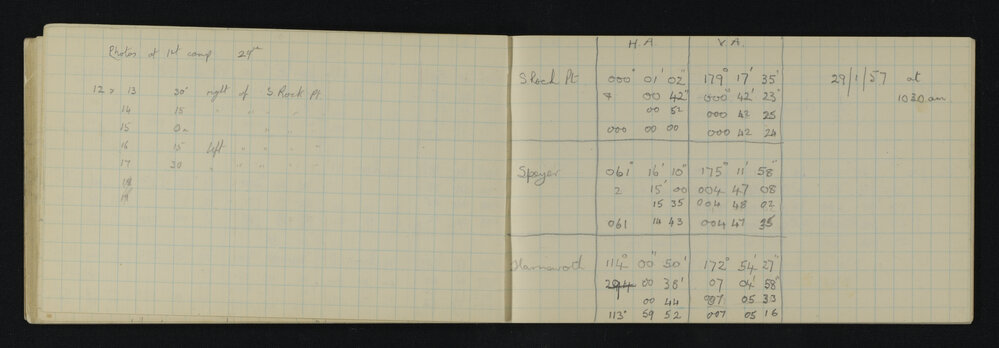 Photos at 1st camp 29th
12 = 13 30° right of S Rock Pt.
14 15 " " " "
15 0° " "
16 15 left " " " "
17 30 " " " " "
18
19
H.A. V.A.
S Rock Pt. 000° 01' 02" 179° 17' 35" 29/1/57 at
00 42" 000° 42' 23" 1030 am.
00 52 000 42 25
000 00 00 000 42 24
Speyer 061° 16' 10" 175° 11' 58"
2 15' 00 004 47 08
15 35 004 48 02
061 14 43 004 47 35
Harnsworth 114° 00" 50' 172° 54' 27"
294 00 38' 07 04' 58"
00 44 007 05 33
113° 59 52 007 05 16